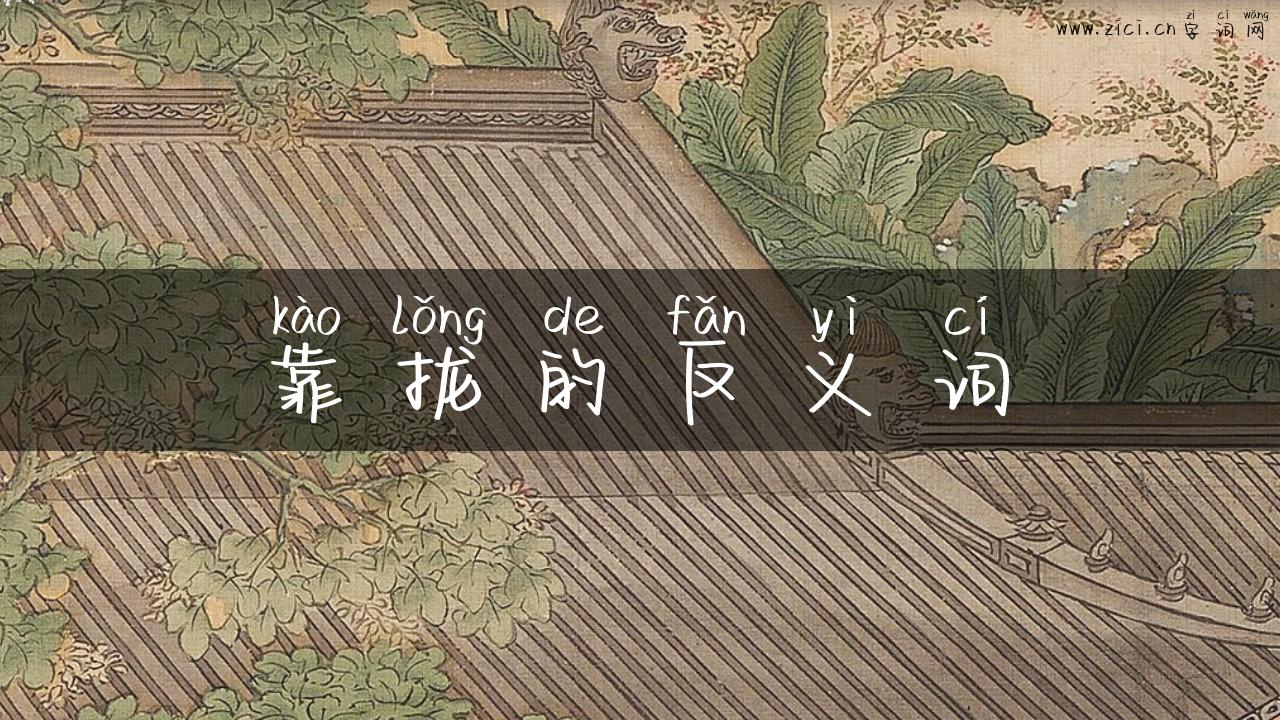 zì cí wǎng
www.zici.cn 字 词 网
kào lǒng de fǎn yì cí
靠 拢 的 反 义 词